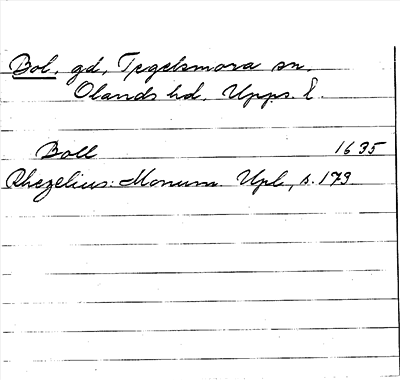 Bol, gd, Tegelsmora sn.
Olands hd. Upps. l.
Boll 1635
Rhezelius: Monum. Upl., s. 173